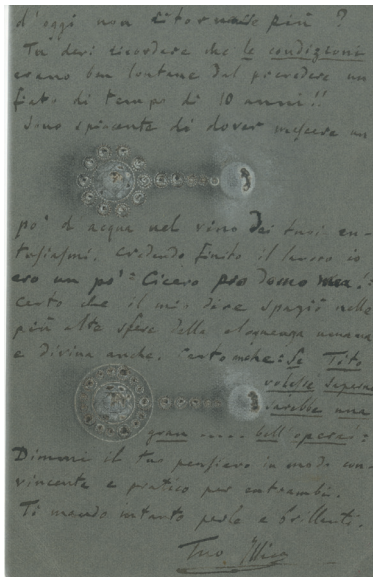 d'oggi non ritornasse più?
Tu devi ricordare che le condizioni
erano ben lontane dal prevedere un
fiato di tempo di 10 anni!!
Sono spiacente di dover mescere un
po' d'acqua nel vino dei tuoi en-
tusiasmi. Credendo finito il lavoro io
ero un po' = Cicero pro domo mea!=
Certo che il mio dire spaziò nelle
più alte sfere della eloquenza umana
e divina anche. Cantò mihe: Se Tito
volesse
sarebbe una
gran ..... bell'opera!=
Dimmi il tuo pensiero in modo con-
vincente e pratico per entrambi.
Ti mando intanto perle e brillanti.
Tuo Illica